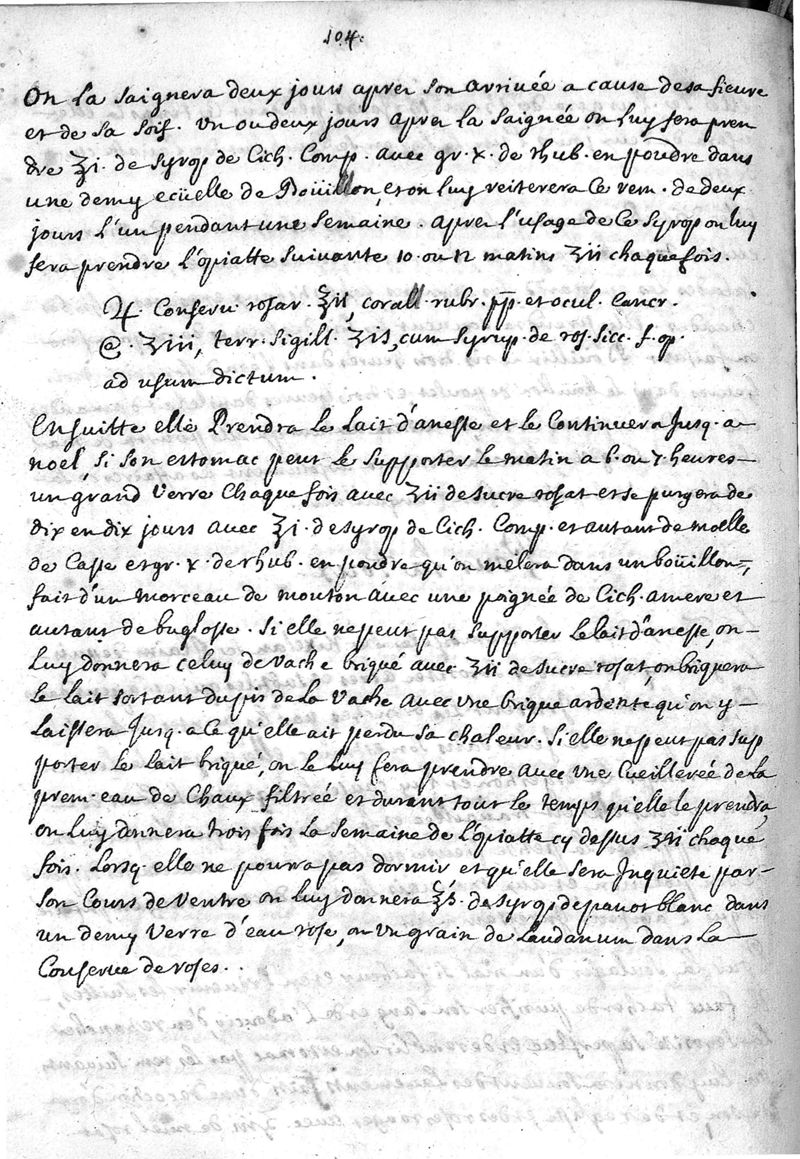 104.
On la saignera deux jours apres son arriuée a cause de sa fieure
et de sa soif. Un ou deux jours apres la saignée on luy fera pren
dre ʒi. de Syrop de Cich. Comp. avec gr. x. de rhub. en poudre dans
une demy ecüelle de Boüillon, et on luy reiterera ce rem. de deux
jours l'un pendant une semaine. apres l'usage de ce Syrop on luy
fera prendre l'opiatte suivante 10. ou 12 matins ʒii chaque fois.
♃. Conserv. rosar. ℥ii, corall. rubr. pp. et ocul. Cancr.
@. ʒiii, terr. sigill. ʒis, cum syrup. de ros. sicc. f. op.
ad usum dictum.
Ensuitte elle Prendra le lait d'anesse et le Continuera Jusq. a
noel, si son estomac peut le supporter le matin a 6. ou 7. heures
un grand Verre Chaque fois avec ʒii de sucre rosat et se purgera de
dix en dix jours avec ℥i. de syrop de Cich. Comp. et autant de moelle
de Casse et gr. x. de rhub. en poudre qu'on mêlera dans un boüillon,
fait d'un morceau de mouton avec une poignée de Cich. amere et
autant de buglosse. Si elle ne peut pas supporter le lait d'anesse, on
luy donnera celuy de Vache briqué avec ʒii de sucre rosat, on briquera
le lait sortant du pis de la Vache avec une brique ardente qu'on y
laissera Jusq. a ce qu'elle ait perdu sa chaleur. Si elle ne peut pas sup
porter le lait briqué, on le luy fera prendre avec une Cueillereé de la
prem. eau de Chaux filtrée et durant tout le temps qu'elle le prendra,
on luy donnera trois fois la semaine de l'opiatte cy dessus ʒii chaque
fois. Lorsq. elle ne pourra pas dormir et qu'elle sera Inquiete par
son Cours de Ventre on luy donnera ℥s. de syrop de pavot blanc dans
un demy Verre d'eau rose, ou un grain de Laudanum dans la
Conserve de roses.